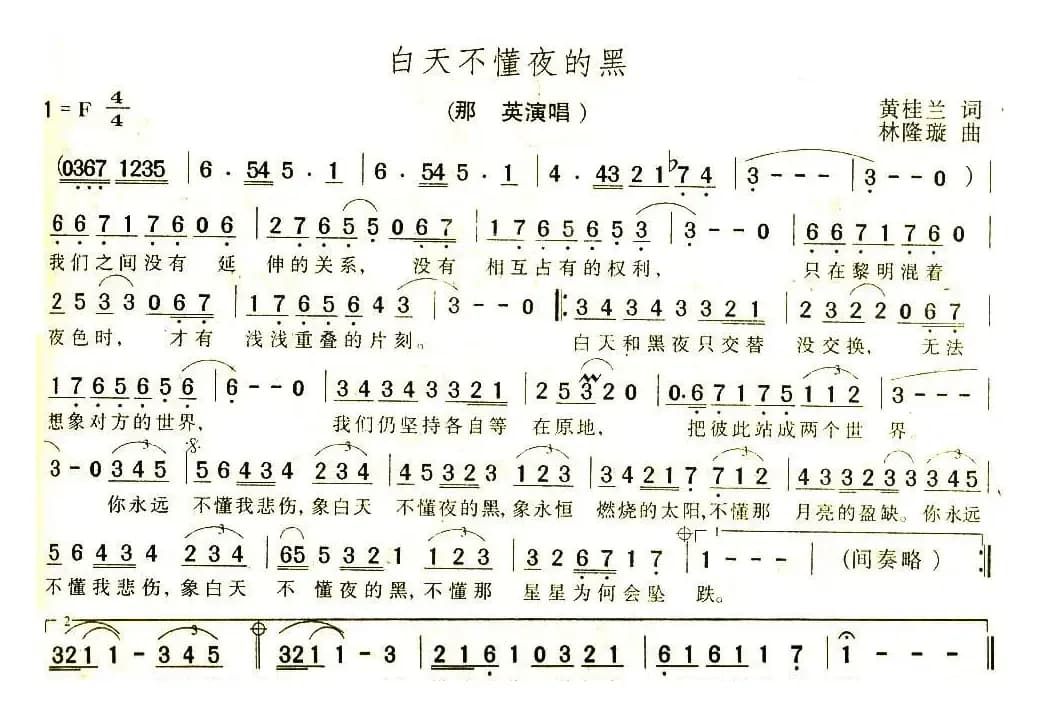 白天不懂夜的黑
1 = F 4/4
(那 英演唱)
黄桂兰 词
林隆璇 曲
(0367 1235 | 6 · 54 5 · 1 | 6 · 54 5 · 1 | 4 · 43 2 1 ♭7 4 | 3 - - - | 3 - - 0 ) |
6 6 7 1 7 6 0 6 | 2 7 6 5 5 0 6 7 | 1 7 6 5 6 5 3 | 3 - - 0 | 6 6 7 1 7 6 0 |
我们之间没有 延 伸的关系, 没有 相互占有的权利, 只在黎明混着
2 5 3 3 0 6 7 | 1 7 6 5 6 4 3 | 3 - - 0 ‖: 3 4 3 4 3 3 2 1 | 2 3 2 2 0 6 7 |
夜色时, 才有 浅浅重叠的片刻。 白天和黑夜只交替 没交换, 无法
1 7 6 5 6 5 6 | 6 - - 0 | 3 4 3 4 3 3 2 1 | 2 5 3 2 0 | 0 · 6 7 1 7 5 1 1 2 | 3 - - - |
想象对方的世界, 我们仍坚持各自等 在原地, 把彼此站成两个世 界。
3 - 0 3 4 5 | 5 6 4 3 4 2 3 4 | 4 5 3 2 3 1 2 3 | 3 4 2 1 7 7 1 2 | 4 3 3 2 3 3 3 4 5 |
你永远 不懂我悲伤, 象白天 不懂夜的黑, 象永恒 燃烧的太阳, 不懂那 月亮的盈缺。 你永远
5 6 4 3 4 2 3 4 | 65 5 3 2 1 1 2 3 | 3 2 6 7 1 7 | 1 - - - | (间奏略) :‖
不懂我悲伤, 象白天 不 懂夜的黑, 不懂那 星星为何会坠 跌。
3 2 1 1 - 3 4 5 ‖ 3 2 1 1 - 3 | 2 1 6 1 0 3 2 1 | 6 1 6 1 1 7 | 1 - - - ‖